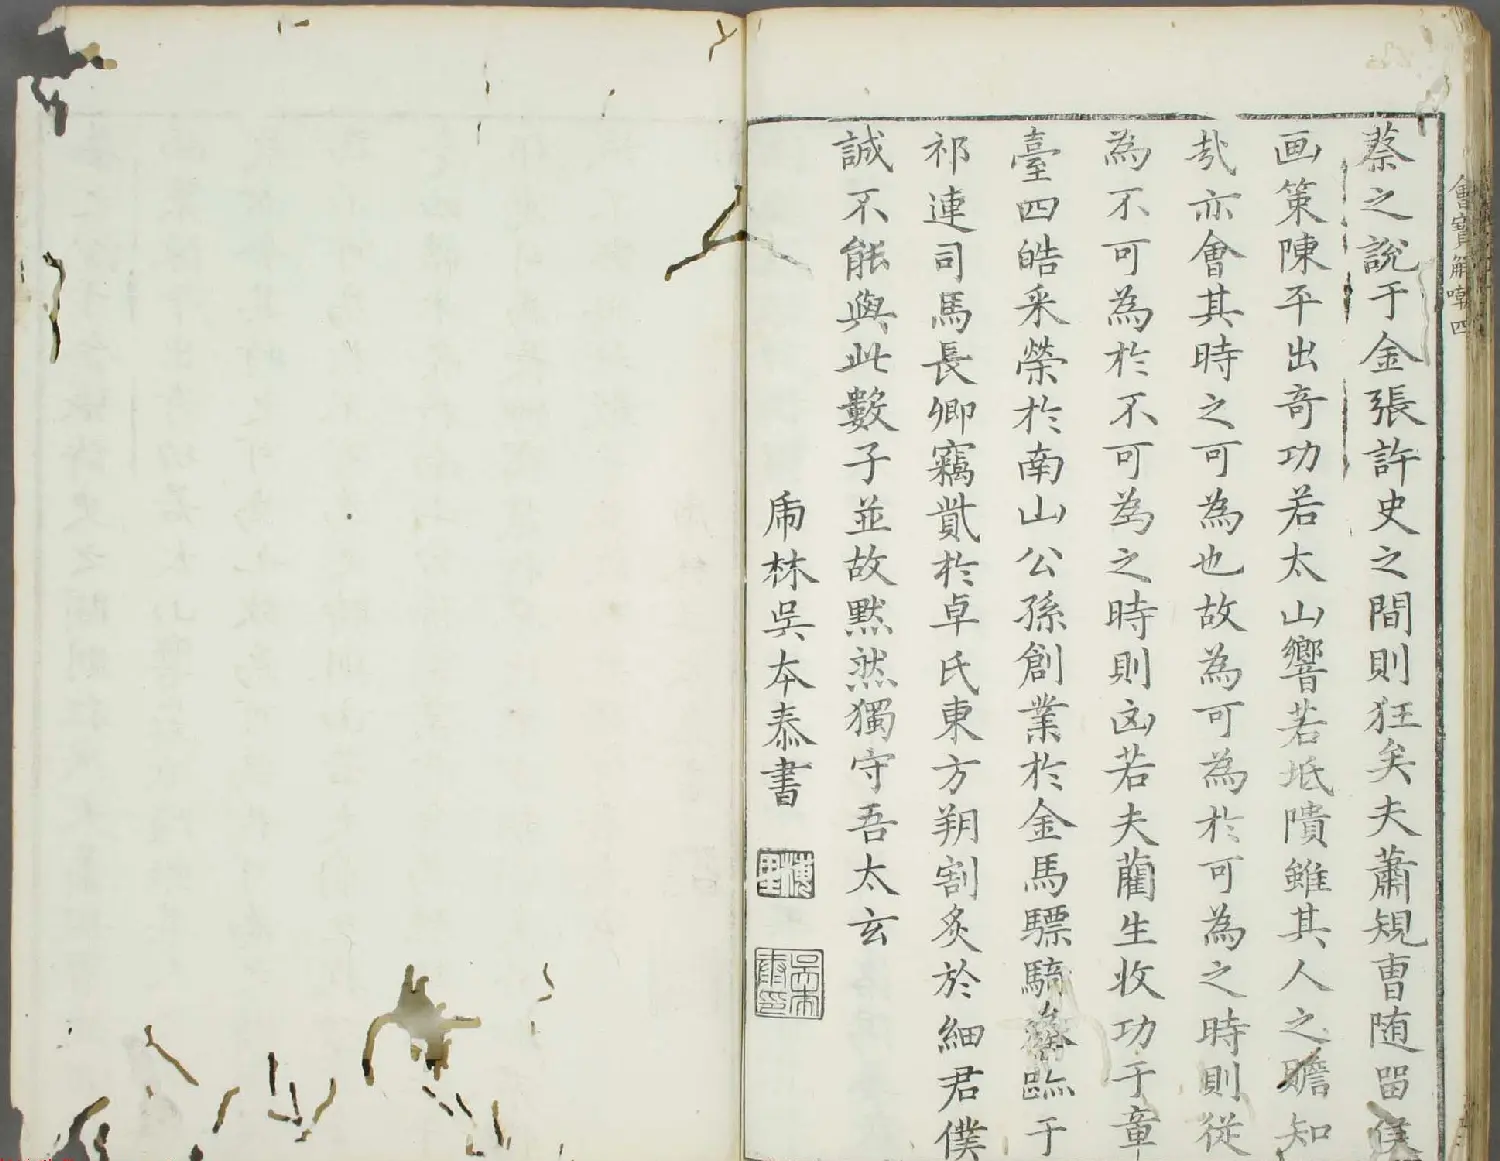 蔡之說于金張許史之間則狂矣夫蕭規曹随畱侯
画策陳平出奇功若太山響若坻隤雖其人之贍知
㢤亦會其時之可為也故為可為於可為之時則從
為不可為於不可為之時則凶若夫藺生收功于章
臺四皓采榮於南山公孫創業於金馬驃騎發跡于
祁連司馬長卿竊貲於卓氏東方朔割炙於細君僕
誠不能與此數子並故默然獨守吾太玄
虎林吳本泰書
會寳解嘲四